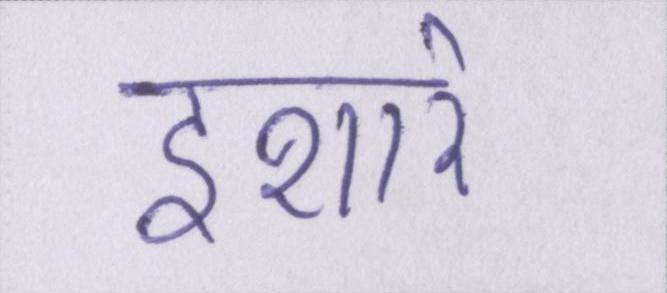 इशारे